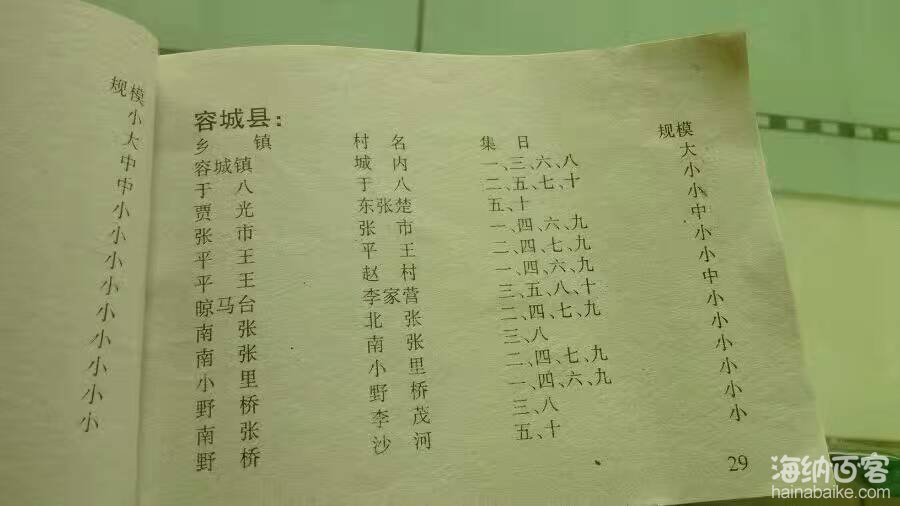 规模
小
大
中
中
小
小
小
小
小
小
小
小
小
容城县：
乡 镇 村 名 集 日 规模
容城镇 城内 一、三、六、八 大
于八 于八 二、五、七、十 小
贾光 东张楚 五、十 小
张市 张市 一、四、六、九 中
平王 平王 二、四、七、九 小
平王 赵村 一、四、六、九 小
晾马台 李家营 三、五、八、十 中
南张 北张 二、四、七、九 小
南张 南张 三、八 小
小里 小里 二、四、七、九 小
野桥 野桥 一、四、六、九 小
南张 李茂 三、八 小
野桥 沙河 五、十 小
29
海纳百客
hainabaike.com